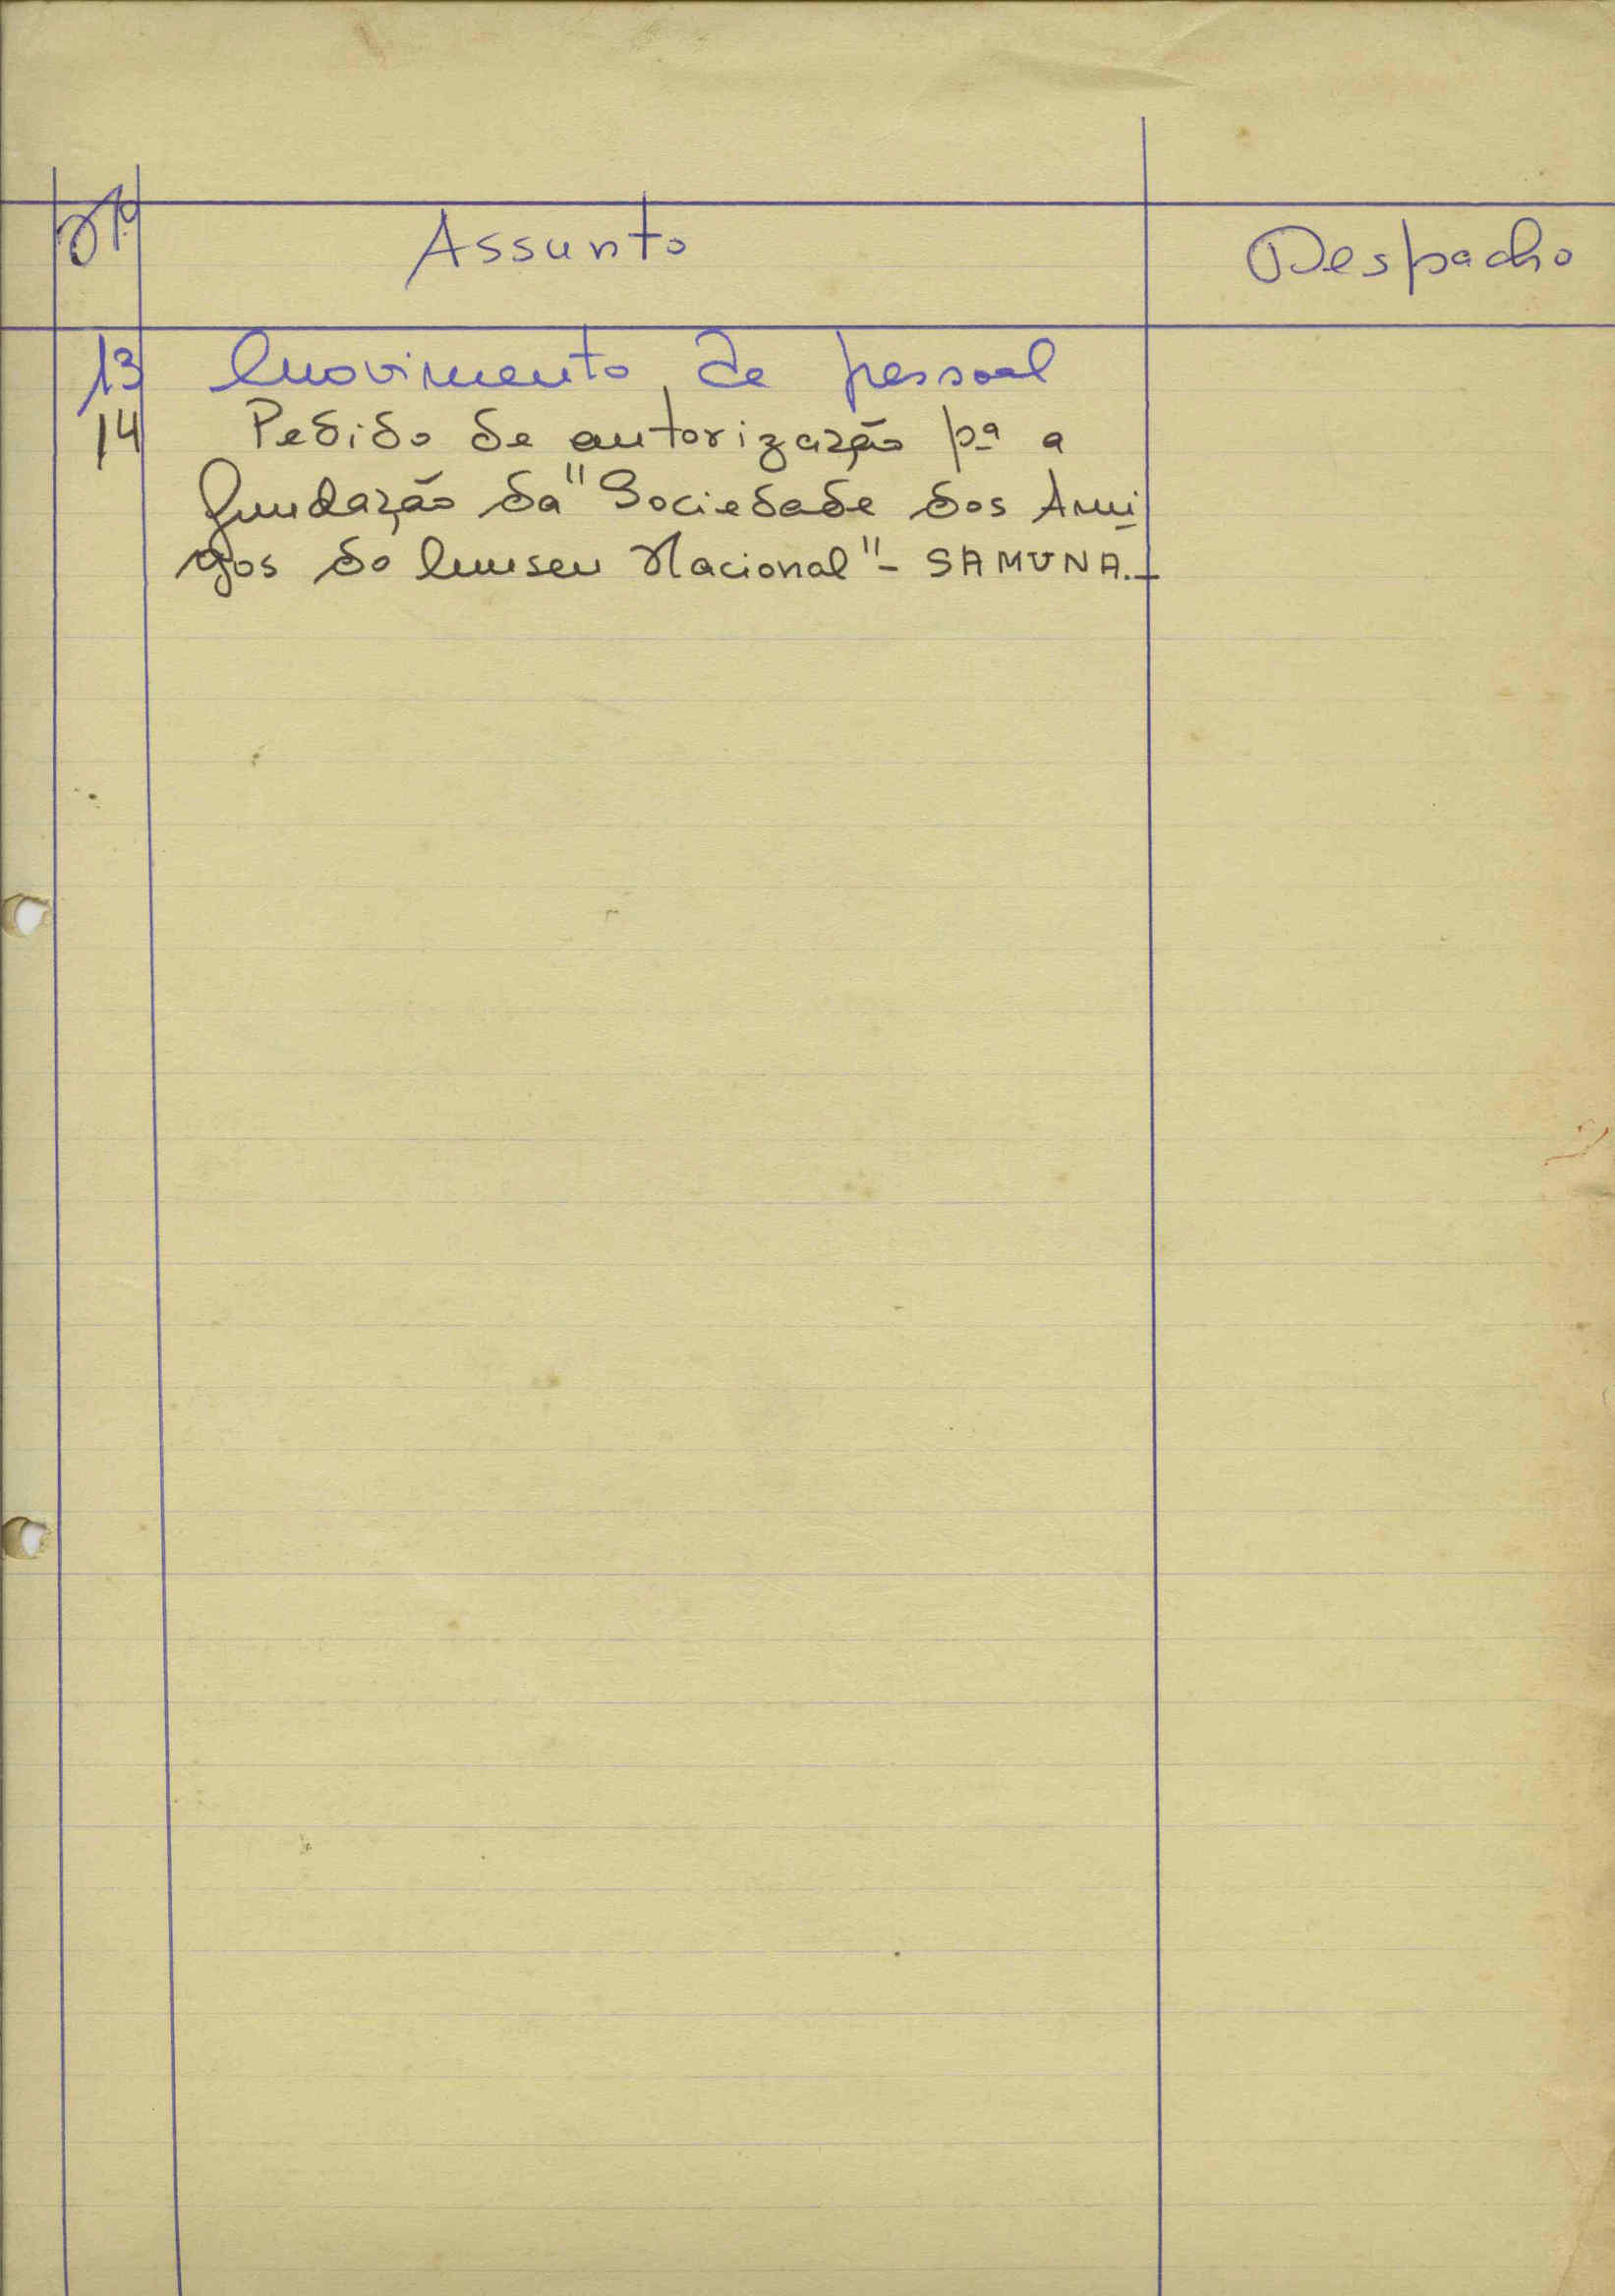 Nº Assunto Despacho
13 Movimento de pessoal
14 Pedido de autorização pª a
fundação da "Sociedade dos Ami
gos do Museu Nacional" - SAMUNA.-